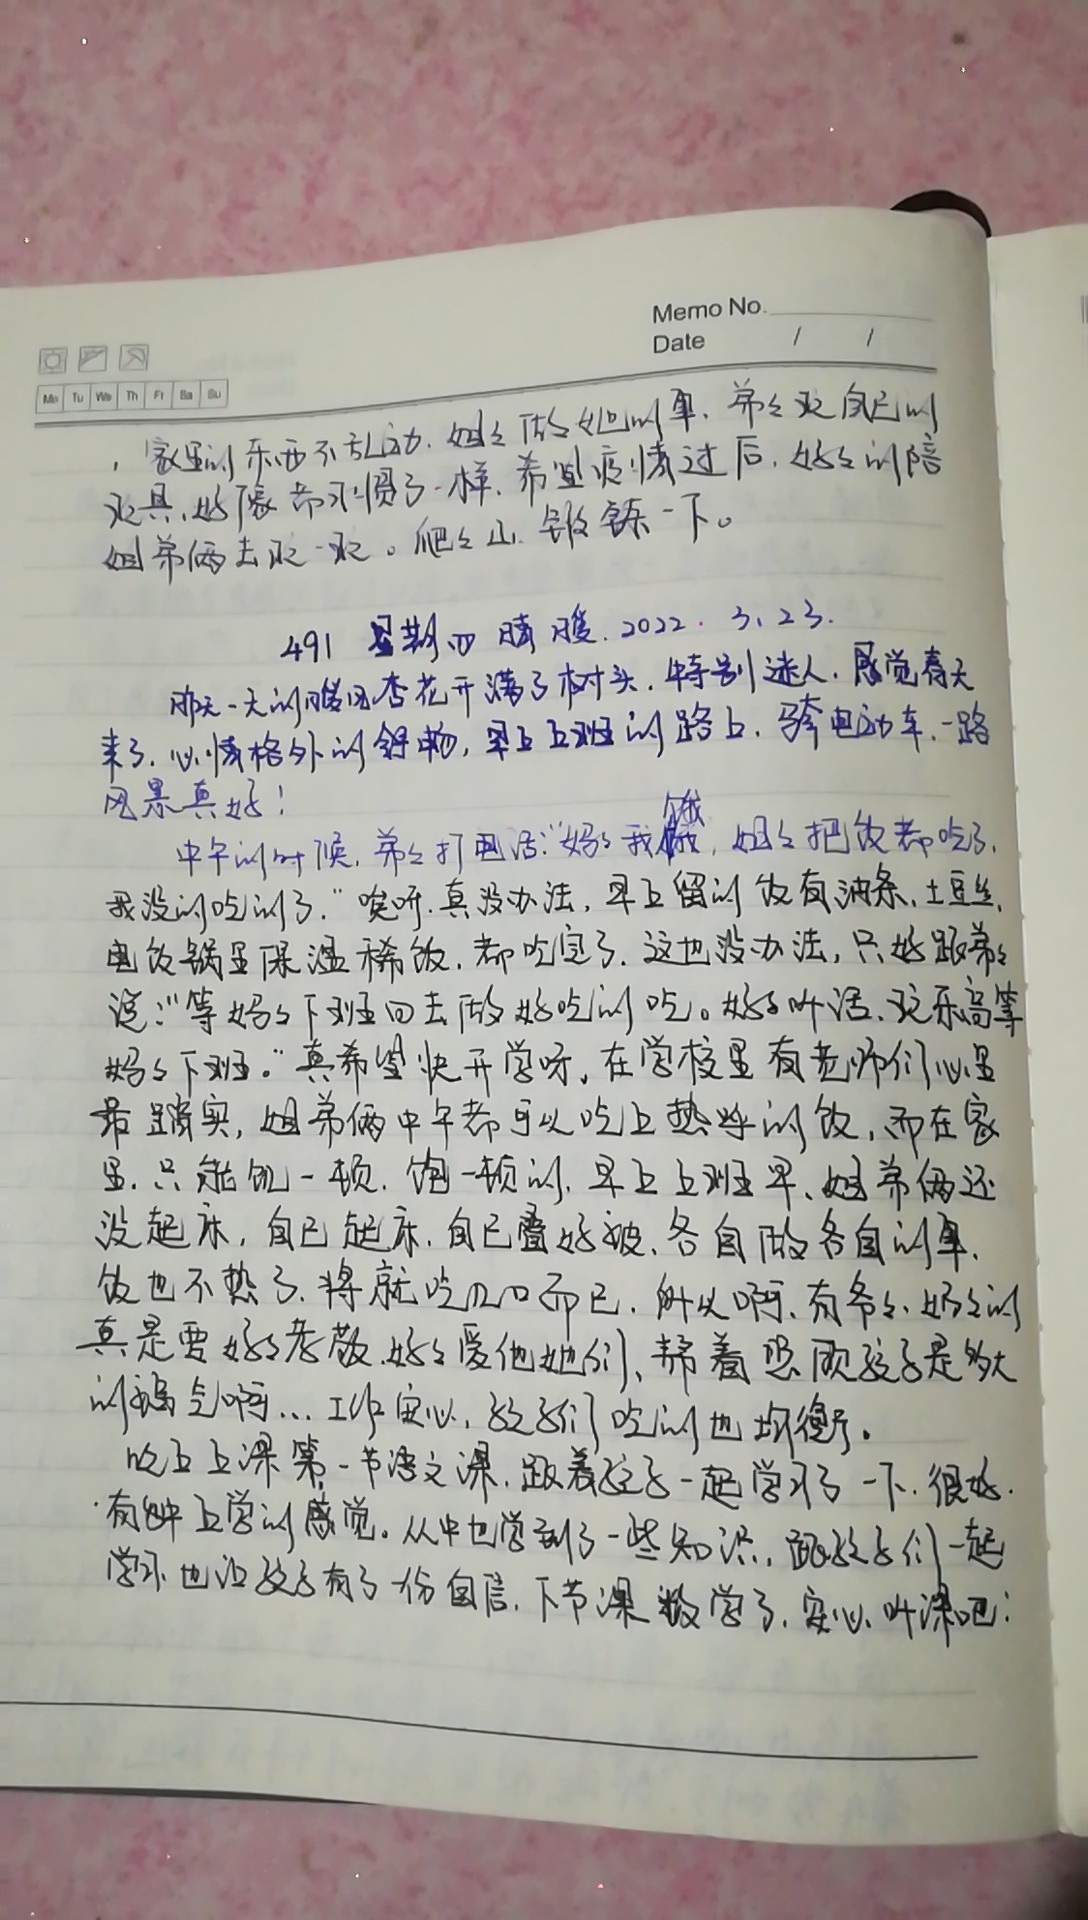 Memo No.
Date / /
Mo Tu We Th Fr Sa Su
，家里的东西不乱动，姐姐做她的事，弟弟玩自己的
玩具，好像都习惯了一样，希望疫情过后，好好的陪
姐弟俩去玩一玩。爬爬山，锻炼一下。
491 星期四 晴 暖．2022．3．23．
昨天一天的暖风杏花开满了树头，特别迷人，感觉春天
来了，心情格外的舒畅，早上上班的路上，骑电动车，一路
风景真好！
中午的时候，弟弟打电话："妈妈我饿，姐姐把饭都吃了，
我没的吃的了，"哎呀，真没办法，早上留的饭有油条，土豆丝，
电饭锅里保温稀饭，都吃完了，这也没办法，只好跟弟弟
说："等妈妈下班回去做好吃的吃。好好听话，玩乐高等
妈妈下班。"真希望快开学呀，在学校里有老师们心里
最踏实，姐弟俩中午都可以吃上热乎的饭，而在家
里，只能饥一顿，饱一顿的，早上上班早，姐弟俩还
没起床，自己起床，自己叠好被，各自做各自的事，
饭也不热了，将就吃几口而已，所以啊，有爷爷、奶奶的
真是要好好孝敬，好好爱他她们，帮着照顾孩子是多大
的福气啊…工作安心，孩子们吃的也均衡。
晚上上课第一节语文课，跟着孩子一起学习了一下，很好，
有种上学的感觉。从中也学到了一些知识，跟孩子们一起
学习也让孩子有了一份自信，下节课数学了，安心听课吧！